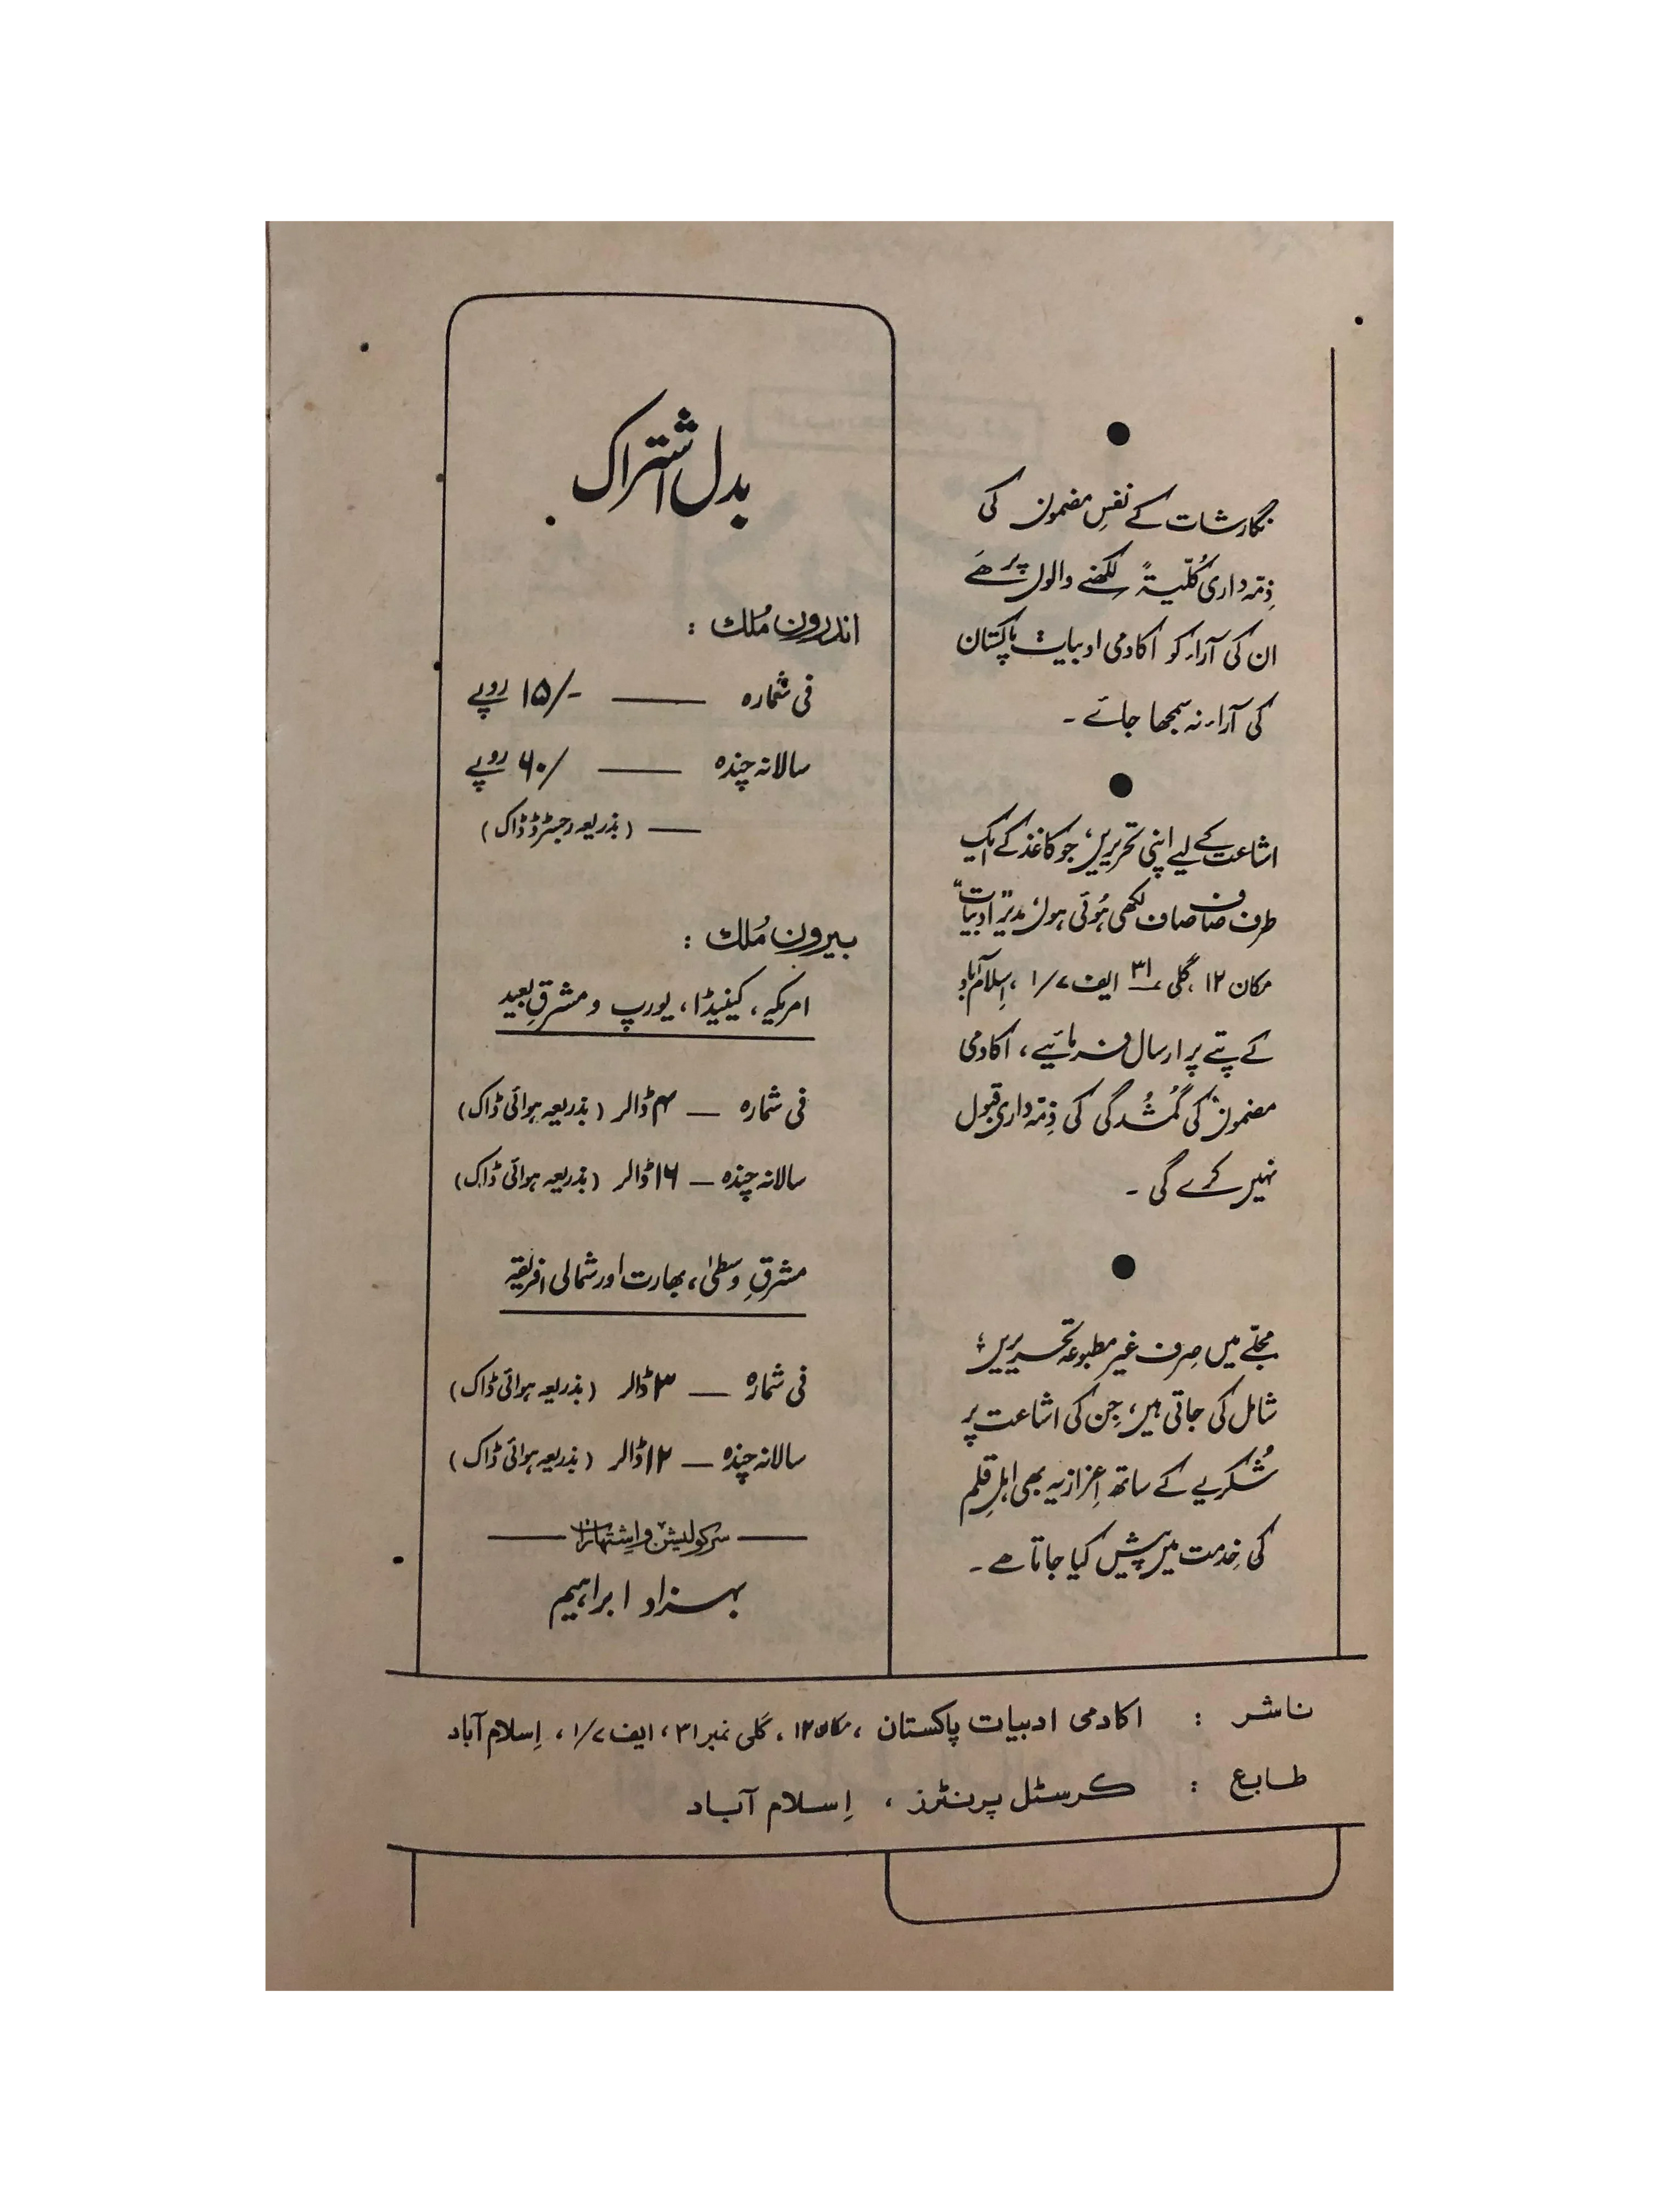 نگارشات کے نفسِ مضمون کی
ذِمّہ داری کُلّیۃً لکھنے والوں پر ھَے
ان کی آراء کو اکادمی ادبیات پاکستان
کی آراء نہ سمجھا جائے ۔
اشاعت کے لیے اپنی تحریریں، جو کاغذ کے ایک
طرف صاف صاف لکھی ہُوئی ہوں، مدیر "ادبیات"
مکان ۱۲ ، گلی ۳۱ ایف ۷/۱ ، اِسلام آباد
کے پتے پر ارسال فرمائیے ، اکادمی
مضمون کی گُمشُدگی کی ذِمّہ داری قبول
نہیں کرے گی ۔
مجلّے میں صِرف غیر مطبوعہ تحریریں
شامل کی جاتی ہیں، جِن کی اشاعت پر
شُکریے کے ساتھ اِعزازیہ بھی اہلِ قلم
کی خِدمت میں پیش کیا جاتا ھے ۔
بدل اشتراک
اندرون مُلک :
فی شمارہ —— ۱۵/- روپے
سالانہ چندہ —— ۶۰/ روپے
—— (بذریعہ رجسٹرڈ ڈاک)
بیرون مُلک :
امریکہ ، کینیڈا ، یورپ و مشرقِ بعید
فی شمارہ — ۴ ڈالر (بذریعہ ہوائی ڈاک)
سالانہ چندہ — ۱۶ ڈالر (بذریعہ ہوائی ڈاک)
مشرقِ وسطیٰ ، بھارت اور شمالی افریقہ
فی شمارہ — ۳ ڈالر (بذریعہ ہوائی ڈاک)
سالانہ چندہ — ۱۲ ڈالر (بذریعہ ہوائی ڈاک)
سرکولیشن و اِشتہارات
بہزاد ابراہیم
ناشر : اکادمی ادبیات پاکستان ، مکان ۱۲ ، گلی نمبر ۳۱ ، ایف ۷/۱ ، اِسلام آباد
طابع : کرسٹل پرنٹرز ، اِسلام آباد